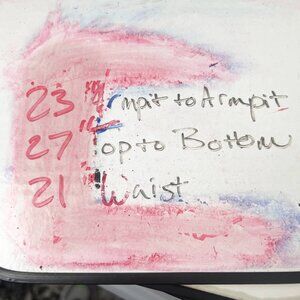 23" Armpit to Armpit
27" Top to Bottom
21" Waist